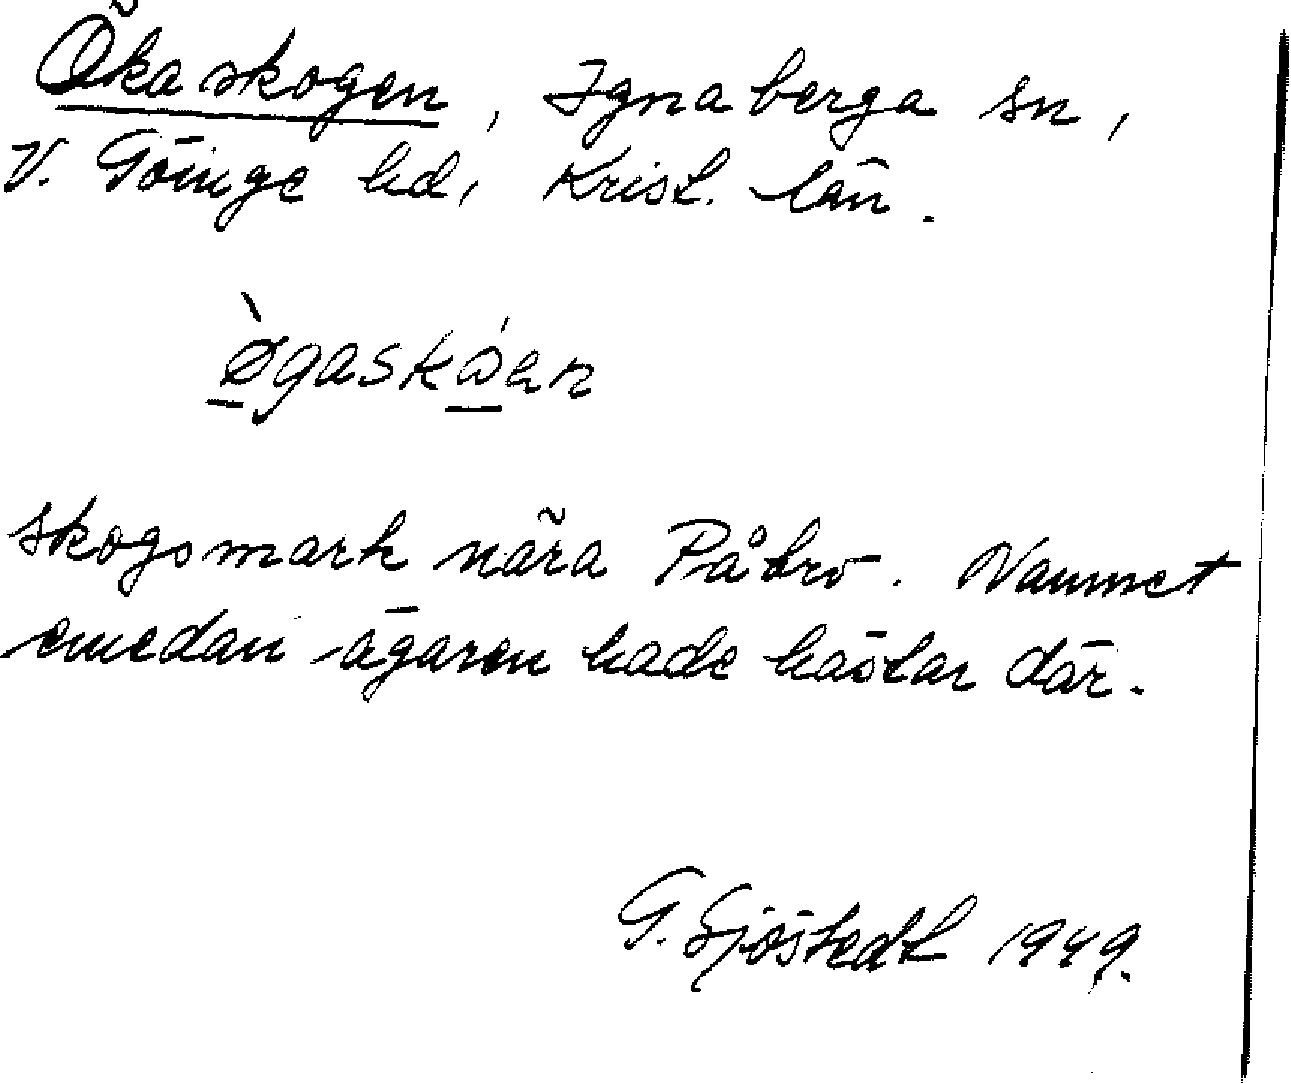 Ökaskogen, Ignaberga sn,
V. Göinge hd, Krist. län.
ø̀gaskώen
skogsmark nära Påbro. Namnet
emedan ägaren hade hästar där.
G. Sjöstedt 1949.